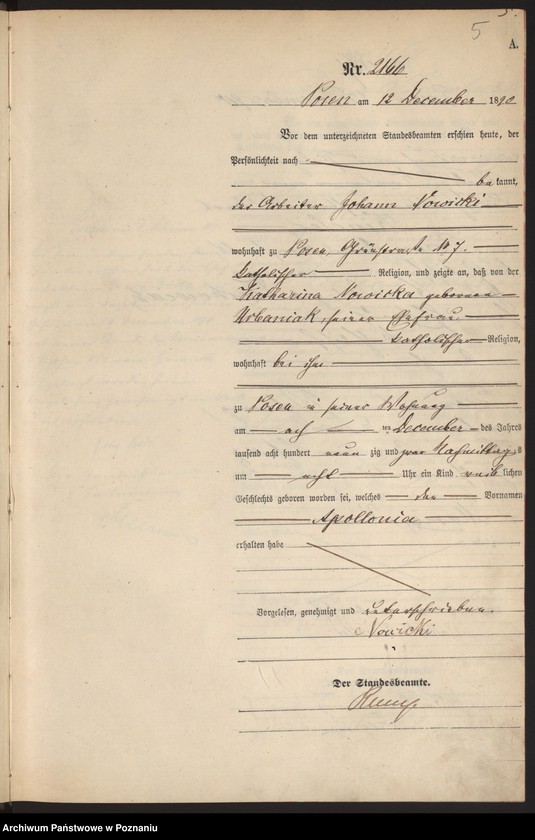 5
A.
Nr. 2166
Posen am 12 December 1890
Vor dem unterzeichneten Standesbeamten erschien heute, der
Persönlichkeit nach
be kannt,
der Arbeiter Johann Nowicki
wohnhaft zu Posen, Grünstraße No 7.
katholischer Religion, und zeigte an, daß von der
Katharina Nowicka geborenen
Urbaniak, seiner Ehefrau
katholischer Religion,
wohnhaft bei ihm
zu Posen in seiner Wohnung
am acht ten December des Jahres
tausend acht hundert neun zig und zwar Nachmittags
um acht Uhr ein Kind weib lichen
Geschlechts geboren worden sei, welches den Vornamen
Apollonia
erhalten habe
Vorgelesen, genehmigt und unterschrieben.
Nowicki
Der Standesbeamte.
Archiwum Państwowe w Poznaniu